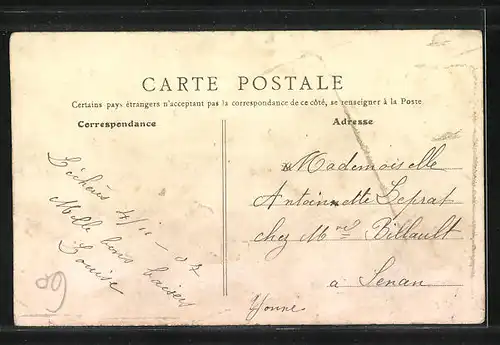 CARTE POSTALE
Certains pays étrangers n'acceptant pas la correspondance de ce côté, se renseigner à la Poste
Correspondance
4/11-07
Mille bons baisers
Louise
Adresse
Mademoiselle
Antoinnette Leprat
chez Mme Billault
à Senan
Yonne